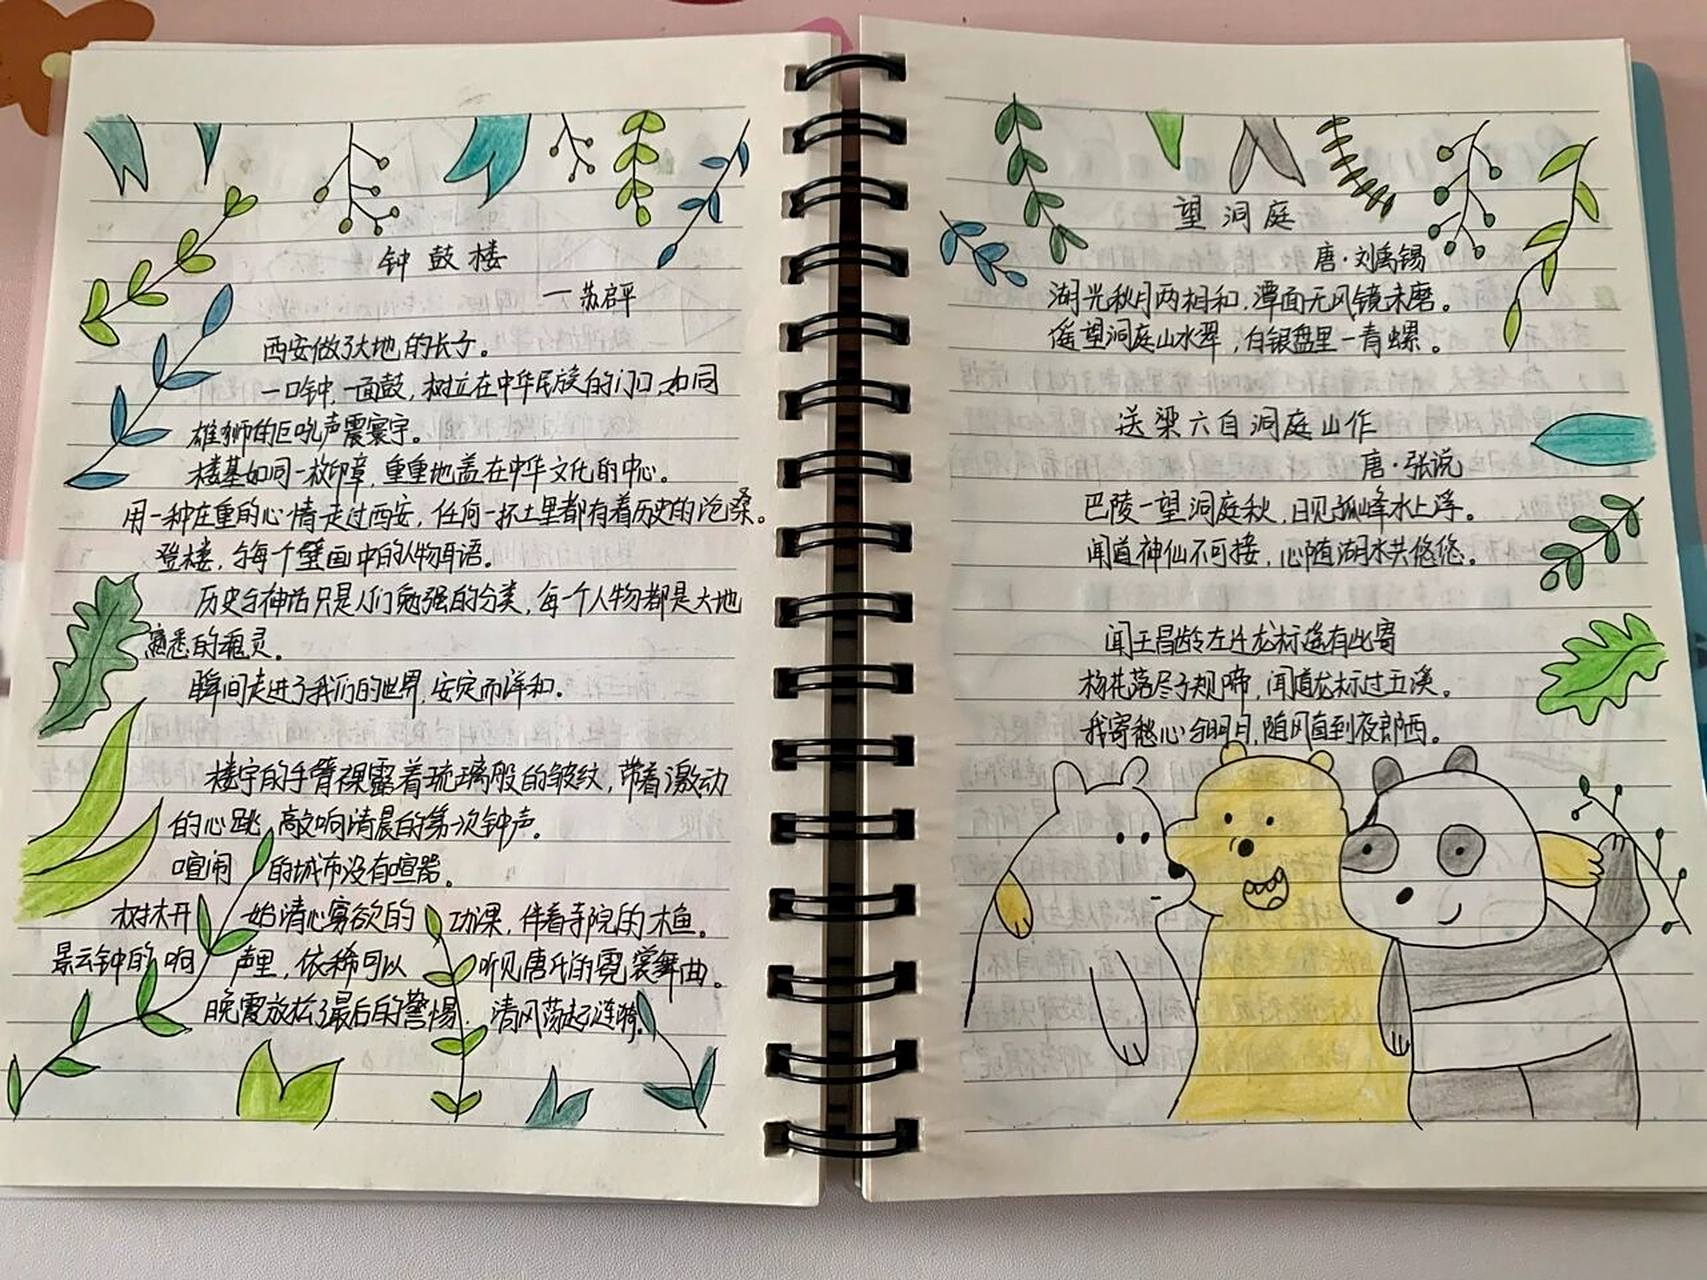 钟鼓楼
——苏启平
西安做了大地的长子。
一口钟,一面鼓,树立在中华民族的门口,如同
雄狮的巨吼声震寰宇。
楼基如同一枚印章,重重地盖在中华文化的中心。
用一种庄重的心情走过西安,任何一抔土里都有着历史的沧桑。
登楼,与每个壁画中的人物耳语。
历史与神话只是人们勉强的分类,每个人物都是大地
熟悉的魂灵。
瞬间走进了我们的世界,安定而详和.
楼宇的手臂裸露着琉璃般的皱纹,带着激动
的心跳,敲响清晨的第一次钟声。
喧闹的城市没有喧嚣。
树木开始清心寡欲的功课,伴着寺院的木鱼。
景云钟的响声里,依稀可以听见唐氏的霓裳舞曲。
晚霞放松了最后的警惕.清风荡起涟漪。
望洞庭
唐·刘禹锡
湖光秋月两相和,潭面无风镜未磨。
遥望洞庭山水翠,白银盘里一青螺。
送梁六自洞庭山作
唐·张说
巴陵一望洞庭秋,日见孤峰水上浮。
闻道神仙不可接,心随湖水共悠悠。
闻王昌龄左迁龙标遥有此寄
杨花落尽子规啼,闻道龙标过五溪。
我寄愁心与明月,随风直到夜郎西。